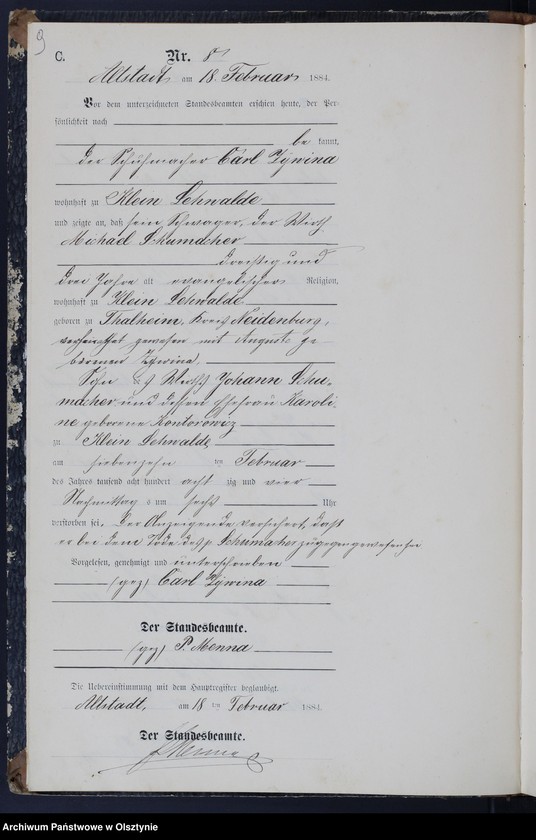 9
C.
Nr. 8
Altstadt am 18. Februar 1884.
Vor dem unterzeichneten Standesbeamten erschien heute, der Per-
sönlichkeit nach
be kannt,
der Schuhmacher Carl Zywina
wohnhaft zu Klein Lehwalde
und zeigte an, daß sein Schwager, der Wirth
Michael Schumacher
dreißig und
drei Jahre alt evangelischer Religion,
wohnhaft zu Klein Lehwalde
geboren zu Thalheim, Kreis Neidenburg,
verheirathet gewesen mit Auguste ge-
borenen Zywina,
Sohn des Wirths Johann Schu-
macher und dessen Ehefrau Karoli-
ne geborene Kontorowiz
zu Klein Lehwalde
am siebenzehn ten Februar
des Jahres tausend acht hundert acht zig und vier
Nachmittag s um sechs Uhr
verstorben sei. Der Anzeigende versichert, daß
er bei dem Tode des p Schumacher zugegen gewesen sei
Vorgelesen, genehmigt und unterschrieben
(gez) Carl Zywina
Der Standesbeamte.
(gez) P. Menna
Die Uebereinstimmung mit dem Hauptregister beglaubigt.
Altstadt, am 18 ten Februar 1884.
Der Standesbeamte.
Menna
Archiwum Państwowe w Olsztynie